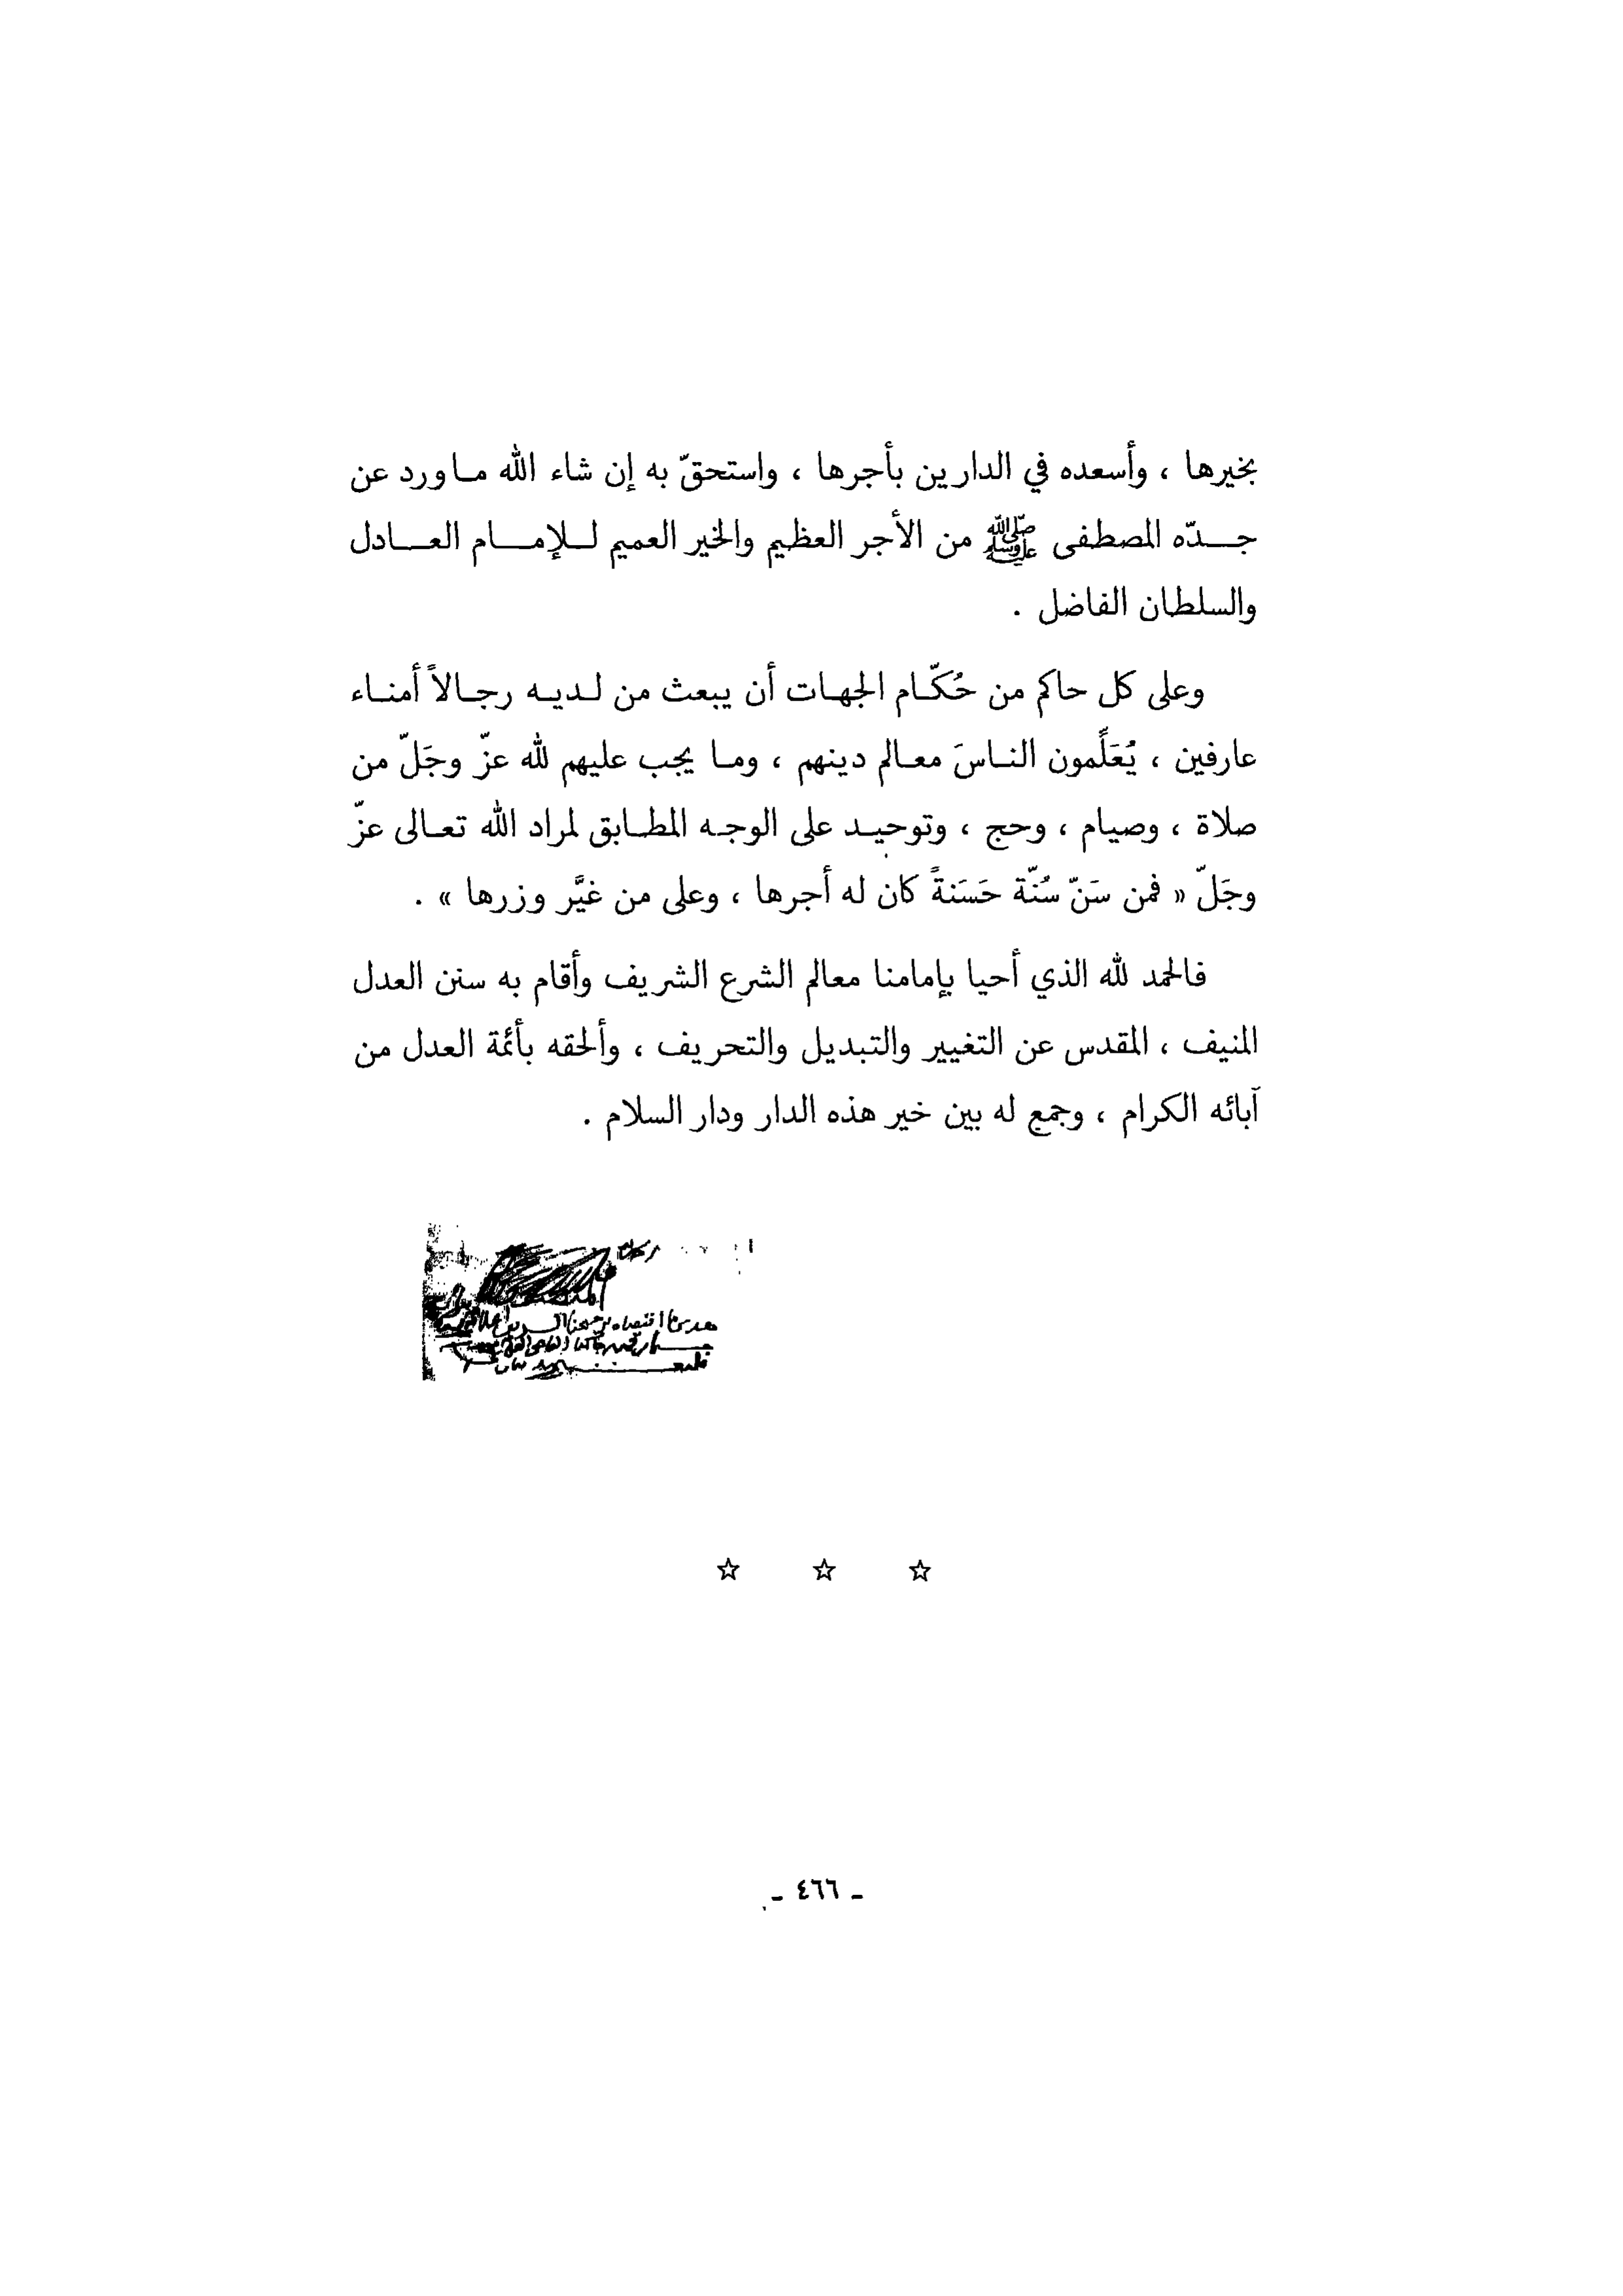 بخيرها ، وأسعده في الدارين بأجرها ، واستحقّ به إن شاء الله ما ورد عن
جدّه المصطفى ﷺ من الأجر العظيم والخير العميم للإمام العادل
والسلطان الفاضل .
وعلى كل حاكم من حُكّام الجهات أن يبعث من لديه رجالاً أمناء
عارفين ، يُعَلِّمون الناسَ معالم دينهم ، وما يجب عليهم لله عزّ وجَلّ من
صلاة ، وصيام ، وحج ، وتوحيد على الوجه المطابق لمراد الله تعالى عزّ
وجَلّ « فمن سَنّ سُنّة حَسَنةً كان له أجرها ، وعلى من غيَّر وزرها » .
فالحمد لله الذي أحيا بإمامنا معالم الشرع الشريف وأقام به سنن العدل
المنيف ، المقدس عن التغيير والتبديل والتحريف ، وألحقه بأئمة العدل من
آبائه الكرام ، وجمع له بين خير هذه الدار ودار السلام .
ـ ٤٦٦ ـ